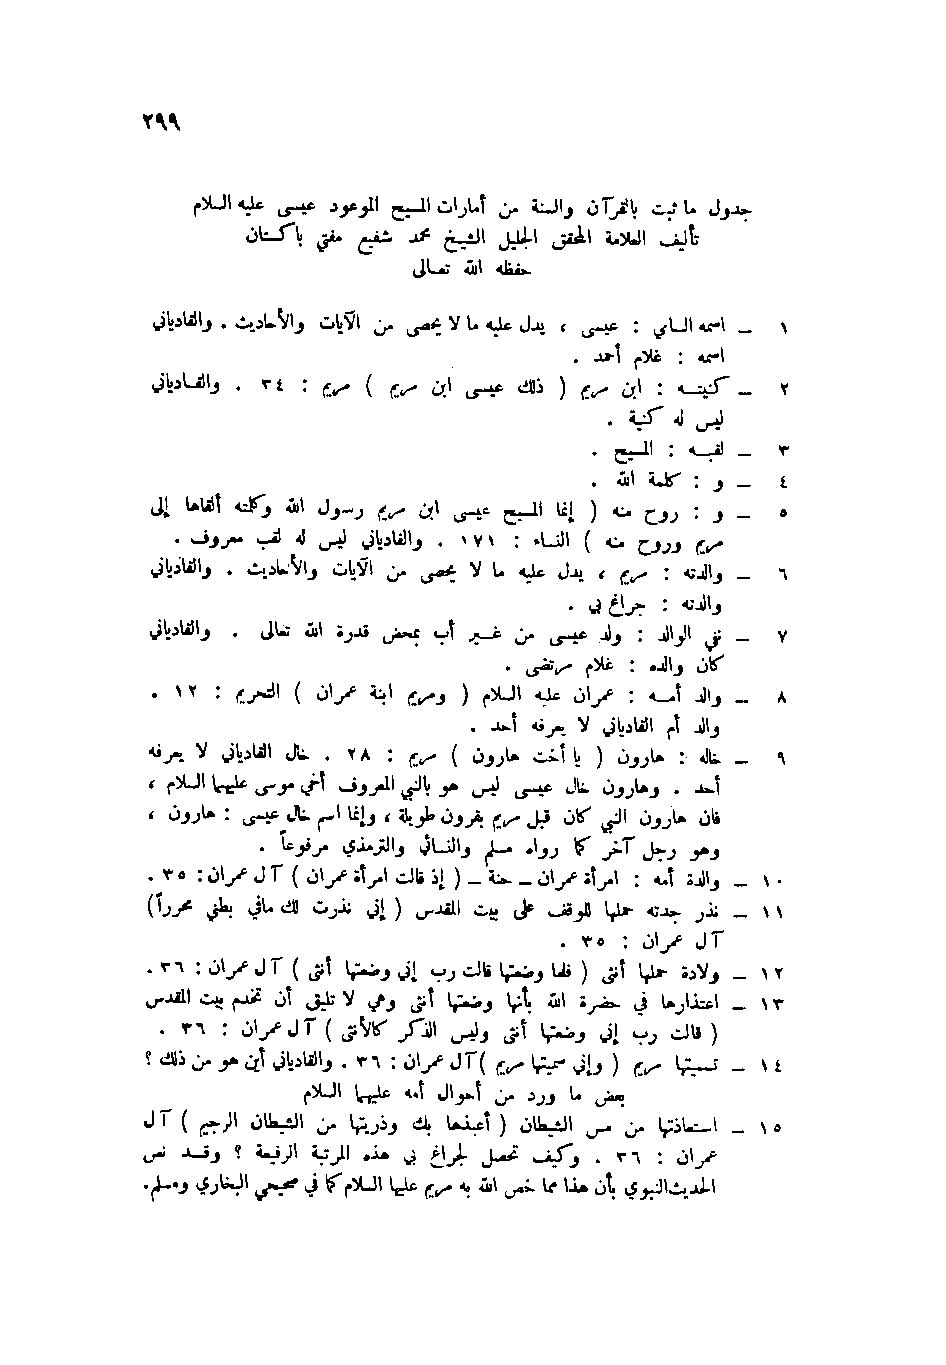 ٢٩٩
جدول ما ثبت بالقرآن والسنة من أمارات المسيح الموعود عيسى عليه السلام
تأليف العلامة المحقق الجليل الشيخ محمد شفيع مفتي باكستان
حفظه الله تعالى
١ ـ اسمه السامي : عيسى ، يدل عليه ما لا يحصى من الآيات والأحاديث . والقادياني
اسمه : غلام أحمد .
٢ ـ كنيته : ابن مريم ( ذلك عيسى ابن مريم ) مريم : ٣٤ . والقادياني
ليس له كنية .
٣ ـ لقبه : المسيح .
٤ ـ و : كلمة الله .
٥ ـ و : روح منه ( إنما المسيح عيسى ابن مريم رسول الله وكلمته ألقاها إلى
مريم وروح منه ) النساء : ١٧١ . والقادياني ليس له لقب معروف .
٦ ـ والدته : مريم ، يدل عليه ما لا يحصى من الآيات والأحاديث . والقادياني
والدته : جراغ بي .
٧ ـ نفي الوالد : ولد عيسى من غير أب بمحض قدرة الله تعالى . والقادياني
كان والده : غلام مرتضى .
٨ ـ والد أمه : عمران عليه السلام ( ومريم ابنة عمران ) التحريم : ١٢ .
والد أم القادياني لا يعرفه أحد .
٩ ـ خاله : هارون ( يا أخت هارون ) مريم : ٢٨ . خال القادياني لا يعرفه
أحد . وهارون خال عيسى ليس هو بالنبي المعروف أخي موسى عليهما السلام ،
فان هارون النبي كان قبل مريم بقرون طويلة ، وإنما اسم خال عيسى : هارون ،
وهو رجل آخر كما رواه مسلم والنسائي والترمذي مرفوعاً .
١٠ ـ والدة أمه : امرأة عمران ـ حنة ـ ( إذ قالت امرأة عمران ) آل عمران : ٣٥ .
١١ ـ نذر جدته حملها للوقف على بيت المقدس ( إني نذرت لك مافي بطني محرراً)
آل عمران : ٣٥ .
١٢ ـ ولادة حملها أنثى ( فلما وضعتها قالت رب إني وضعتها أنثى ) آل عمران : ٣٦ .
١٣ ـ اعتذارها في حضرة الله بأنها وضعتها أنثى وهي لا تليق أن تخدم بيت المقدس
( قالت رب إني وضعتها أنثى وليس الذكر كالأنثى ) آل عمران : ٣٦ .
١٤ ـ تسميتها مريم ( وإني سميتها مريم )آل عمران : ٣٦ . والقادياني أين هو من ذلك ؟
بعض ما ورد من أحوال أمه عليهما السلام
١٥ ـ استعاذتها من مس الشيطان ( أعيذها بك وذريتها من الشيطان الرجيم ) آل
عمران : ٣٦ . وكيف تحصل لجراغ بي هذه المرتبة الرفيعة ؟ وقد نص
الحديث النبوي بأن هذا مما خص الله به مريم عليها السلام كما في صحيحي البخاري ومسلم.